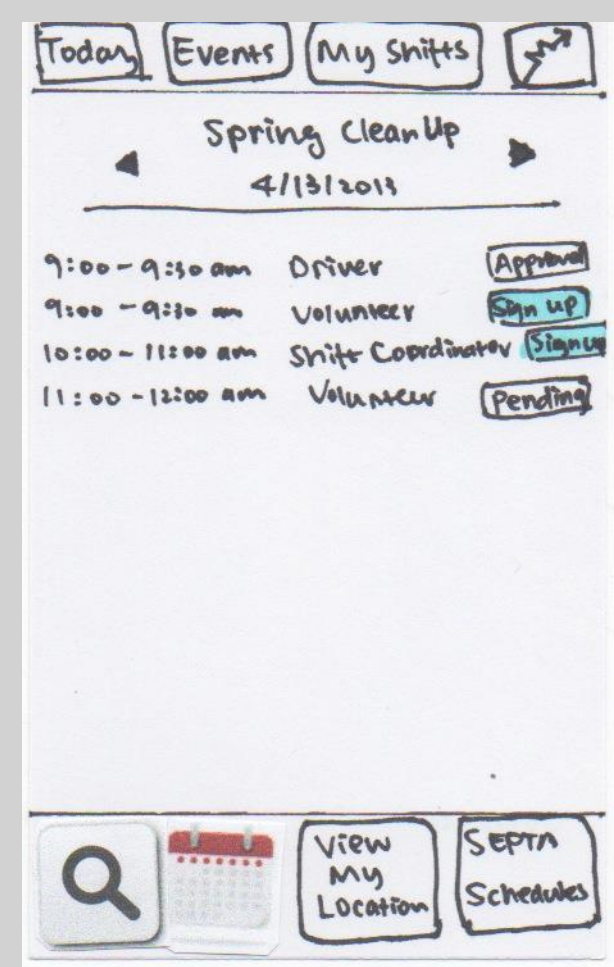 Today Events My Shifts
Spring CleanUp
4/13/2013
9:00 - 9:30 am Driver Approval
9:00 - 9:30 am Volunteer Sign up
10:00 - 11:00 am Shift Coordinator Sign up
11:00 - 12:00 am Volunteer Pending
View
My
Location
SEPTA
Schedules